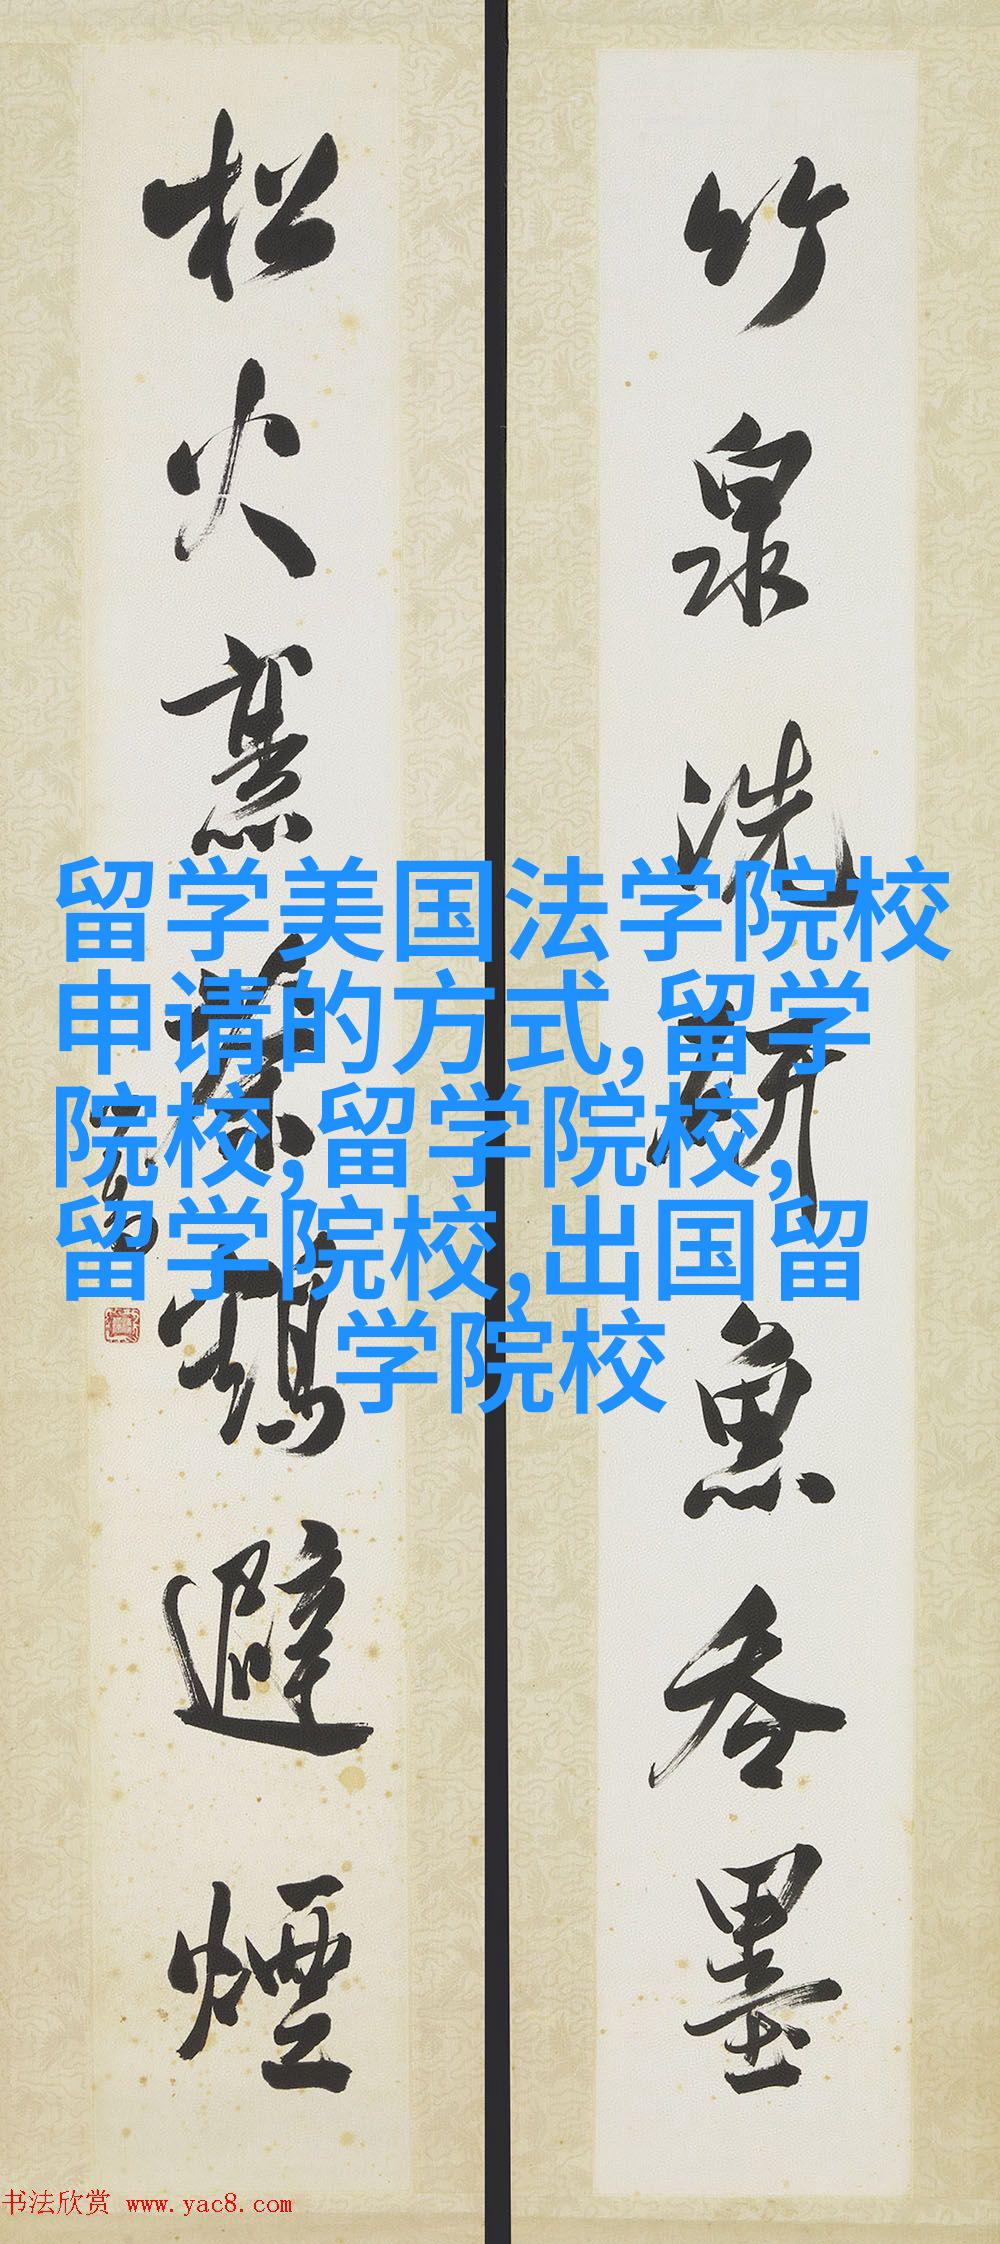 竹泉洗研魚吞墨
松火茶鶴避煙
留学美国法学院校
申请的方式,留学
院校,留学院校,
留学院校,出国留
学院校
书法欣赏 www.yac8.com